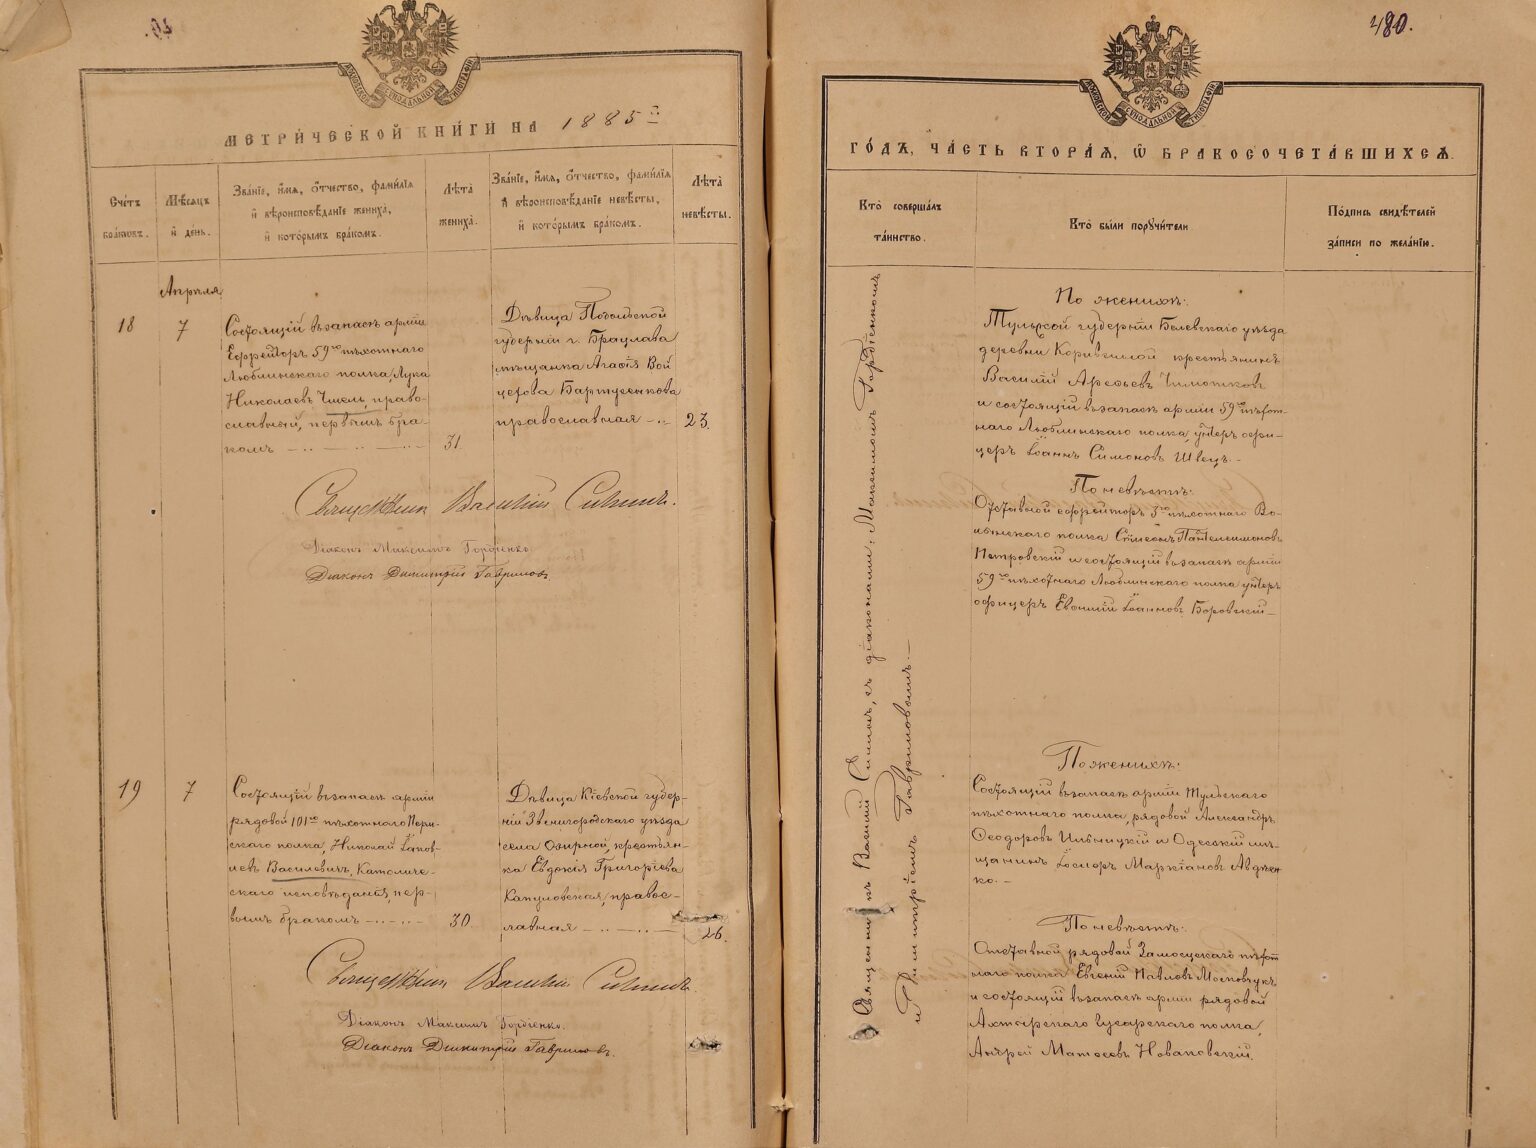 480.
МОСКОВСКОЙ СѴНОДАЛЬНОЙ ТИПОГРАФІИ
МЕТРИ́ЧЕСКОЙ КНИ́ГИ НА 1885 й
Сче́тъ бра́ковъ.
Мѣ́сяцъ и҆ день.
Зва́ніе, и҆́мя, ѻ҆́тчество, фами́лія
и҆ вѣроисповѣ́даніе жениха̀,
и҆ кото́рымъ бра́комъ.
Лѣ́та жениха̀.
Зва́ніе, и҆́мя, ѻ҆́тчество, фами́лія
и҆ вѣроисповѣ́даніе невѣ́сты,
и҆ кото́рымъ бра́комъ.
Лѣ́та невѣ́сты.
Апрѣля
18
7
Состоящій въ запасѣ арміи
Ефрейторъ 59го пѣхотнаго
Люблинскаго полка, Лука
Николаевъ Чмель, право-
славный, первымъ бра-
комъ
31.
Дѣвица Подольской
губерніи г. Брацлава
мѣщанка Агафія Вой
цехова
православная
23.
Священникъ Василій
Діаконъ Максимъ Гордіенко
Діаконъ Димитрій Гавриловъ
19
7
Состоящій въ запасѣ арміи
рядовой 101го пѣхотнаго Перм-
скаго полка, Николай
Василевичъ, Католиче-
скаго исповѣданія, пер-
вымъ бракомъ
30.
Дѣвица Кіевской губер-
ніи Звенигородскаго уѣзда
села Озирной, крестьян-
ка Евдокія Григоріева
Капуловская, правос-
лавная
26.
Священникъ Василій
Діаконъ Максимъ Гордіенко.
Діаконъ Димитрій Гавриловъ.
МОСКОВСКОЙ СѴНОДАЛЬНОЙ ТИПОГРАФІИ
ГО́ДЪ, ЧА́СТЬ ВТОРА́Я, Ѽ БРАКОСОЧЕТА́ВШИХСЯ.
Кто̀ соверша́лъ
та́инство.
Кто̀ бы́ли порꙋчи́тели.
По́дпись свидѣ́телей
за́писи по жела́нію.
Священникъ Василій съ діаконами: Максимомъ Гордіенкомъ
и Димитріемъ Гавриловымъ.
По женихѣ:
Тульской губерніи Белевскаго уѣзда
деревни крестьянинъ
Василій Арефьевъ Чимотковъ
и состоящій въ запасѣ арміи 59го пѣхот-
наго Люблинскаго полка, унтеръ офи-
церъ Іоаннъ Симоновъ Швецъ.
По невѣстѣ:
Отставной ефрейторъ 5го пѣхотнаго Во-
лынскаго полка Симеонъ Пантелеимоновъ
Петровскій и состоящій въ запасѣ арміи
59го пѣхотнаго Люблинскаго полка унтеръ
офицеръ Евфимій Іоанновъ Боровскій
По женихѣ:
Состоящій въ запасѣ арміи Тульскаго
пѣхотнаго полка, рядовой Александръ
Феодоровъ Ильницкій и Одесскій мѣ-
щанинъ Іосифъ Маркіановъ Авдѣен
ко.
По невѣстѣ:
Отставной рядовой Замосцскаго пѣхот
наго полка Евгеній Павловъ
и состоящій въ запасѣ арміи рядовой
Ахтырскаго Гусарскаго полка,
Андрей Матфеевъ Новаковскій.